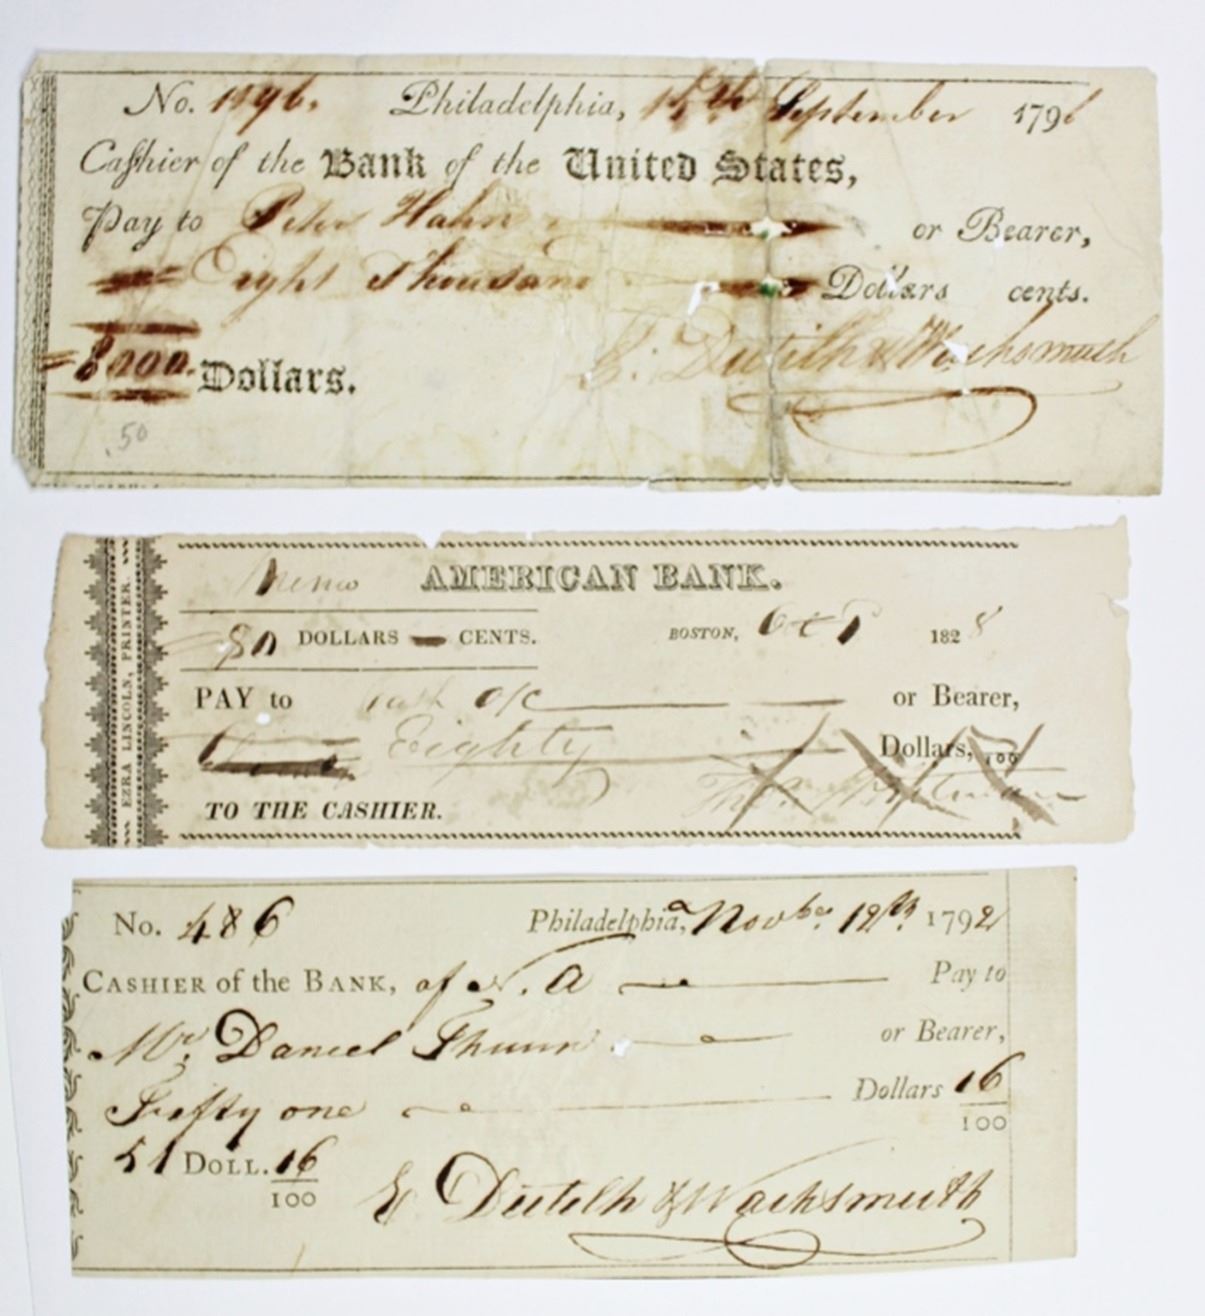 No. 1196. Philadelphia, 15th September 1796
Cashier of the Bank of the United States,
Pay to Peter Hahn or Bearer,
Eight Thousand Dollars cents.
8000. Dollars. E. Dutilh & Wachsmuth
.50
EZRA LINCOLN, PRINTER.
Memo AMERICAN BANK.
80 DOLLARS CENTS. BOSTON, Oct 1828
PAY to Cash o/c or Bearer,
Eighty Dollars, 100
TO THE CASHIER.
No. 486 Philadelphia, Novber 12th 1792
CASHIER of the BANK, of N. A Pay to
Mr. Daniel Thuun or Bearer,
Fifty one Dollars 16/100
51 DOLL. 16/100 E Dutilh & Wachsmuth